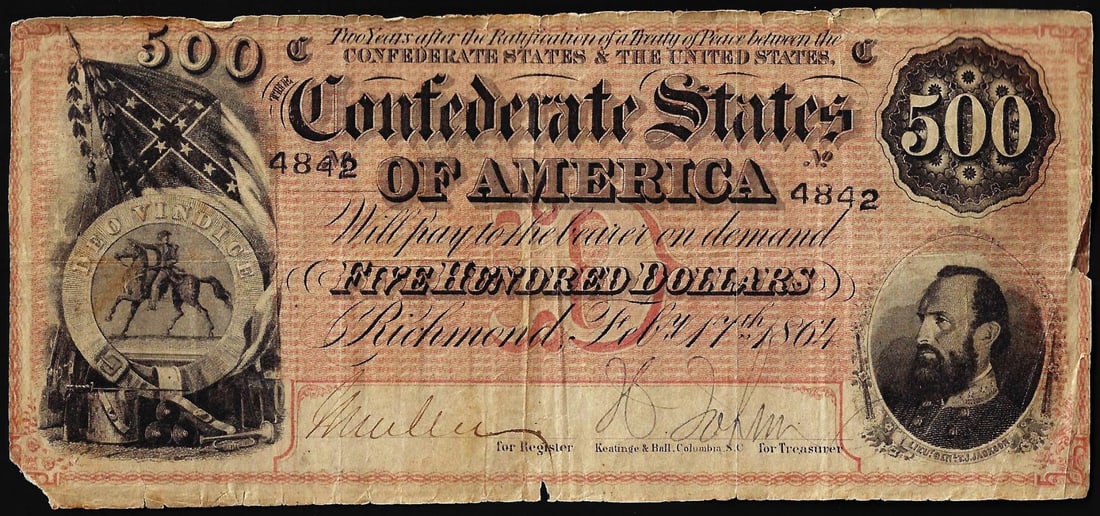 500
C
Two Years after the Ratification of a Treaty of Peace between the
C
CONFEDERATE STATES & THE UNITED STATES,
500
THE
Confederate States
OF AMERICA
No 4842
No 4842
DEO VINDICE
Will pay to the bearer on demand
FIVE HUNDRED DOLLARS
Richmond, Feby. 17th 1864
for Register
Keatinge & Ball, Columbia, S.C.
for Treasurer
LIEUT. GEN. T.J. JACKSON